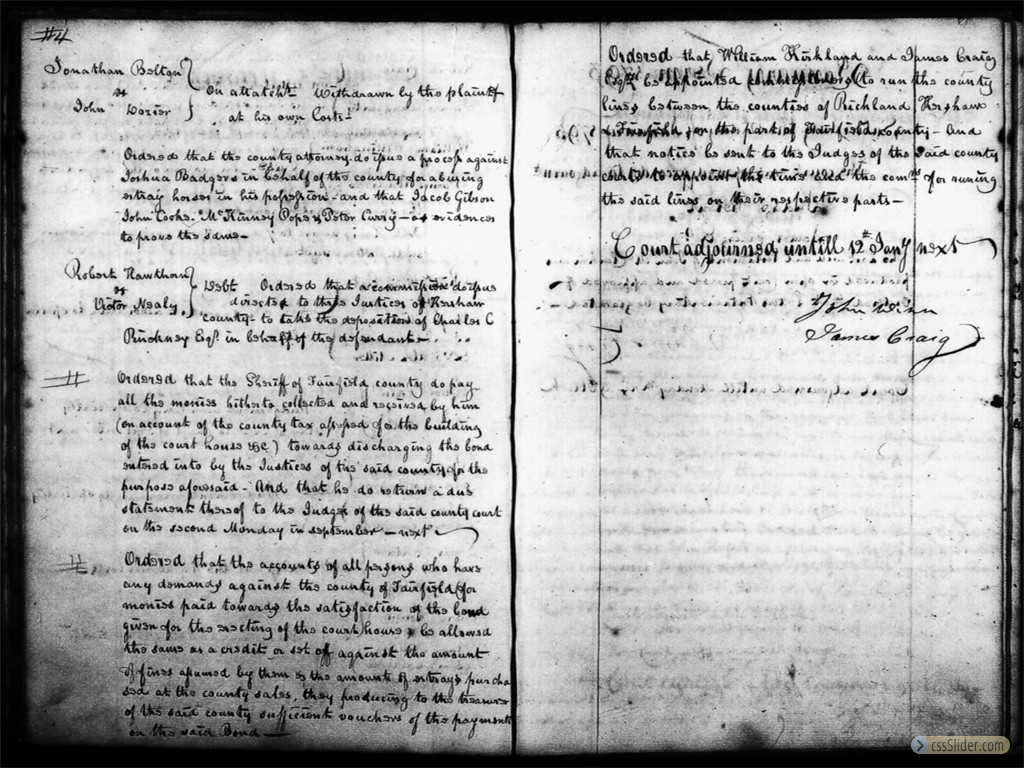 #4
Jonathan Belton
vs
John Dozier
On attatcht Withdrawn by the plaintff
at his own Costs—
Ordered that the county attorney do issue a process against
Joshua Badgers in behalf of the county for abusing
estray horses in his possession - and that Jacob Gibson
John Cooke - McKinney Pope & Peter Curry — as evidences
to prove the same —
Robert Hawthorn
vs
Victor Nealy
Debt Ordered that a commission do issue
directed to three Justices of Kershaw
county - to take the deposition of Charles C
Pinckney Esqr. in behalf of the defendant —
Ordered that the Sheriff of Fairfield county do pay
all the monies hitherto collected and received by him
(on account of the county tax assessed for the building
of the court house &c) towards discharging the bond
entered into by the Justices of the said county for the
purpose aforesaid - And that he do return a due
statement thereof to the Judges of the said county court
on the second Monday in september — next
Ordered that the accounts of all persons who have
any demands against the county of Fairfield for
monies paid towards the satisfaction of the bond
given for the erecting of the court house, be allowed
the same as a credit or set off against the amount
of fines assumed by them or the amount of estrays purcha
sed at the county sales, they producing to the treasurer
of the said county sufficient vouchers of the payment
on the said Bond —
Ordered that William Kirkland and James Craig
Esqrs be appointed to run the county
lines between the counties of Richland Kershaw
& Fairfield for the part of Fairfield county - And
that notice be sent to the Judges of the said county
courts to appoint the time and the comrs for runing
the said lines on their respective parts —
Court adjourned untill 12th Jany next
John Winn
James Craig
cssSlider.com